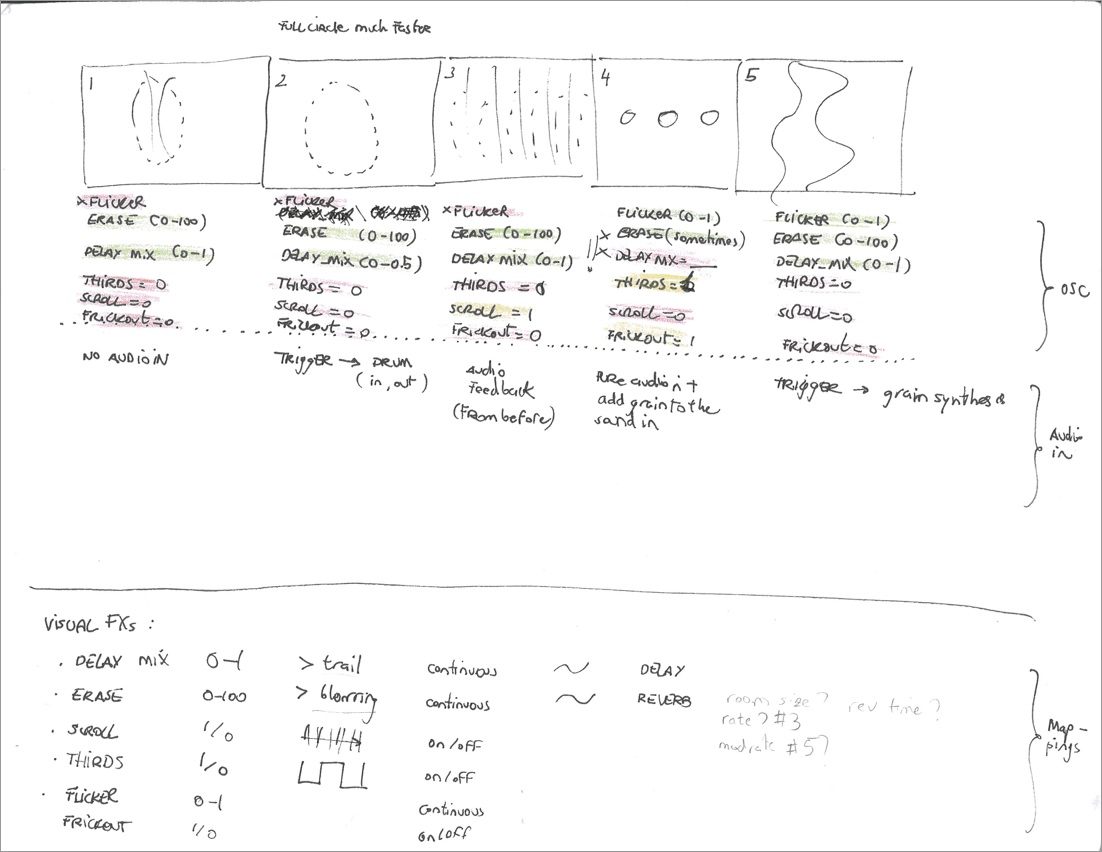 FULL CIRCLE much FASTER
1
2
3
4
5
x FLICKER
ERASE (0-100)
DELAY MIX (0-1)
THIRDS = 0
SCROLL = 0
FRICKOUT = 0
NO AUDIO IN
x FLICKER
ERASE (0-100)
DELAY_MIX (0-0.5)
THIRDS = 0
SCROLL = 0
FRICKOUT = 0
TRIGGER → DRUM
(in, out)
x FLICKER
ERASE (0-100)
DELAY MIX (0-1)
THIRDS = 0
SCROLL = 1
FRICKOUT = 0
AUDIO
Feedback
(From before)
FLICKER (0-1)
x ERASE (sometimes)
x DELAY MX = __
THIRDS =
SCROLL = 0
FRICKOUT = 1
PURE audio n +
add grain to the
sand in
FLICKER (0-1)
ERASE (0-100)
DELAY_MIX (0-1)
THIRDS = 0
SCROLL = 0
FRICKOUT = 0
TRIGGER → grain synthesis
OSC
Audio
in
VISUAL FXs :
. DELAY MIX 0-1 > trail continuous ~ DELAY
. ERASE 0-100 > blurring continuous ~ REVERB room size? rev time?
rate? #3
modrate #5?
. SCROLL 1/0 on/off
. THIRDS 1/0 on/off
. FLICKER 0-1 continuous
FRICKOUT 1/0 on/off
Map-
pings